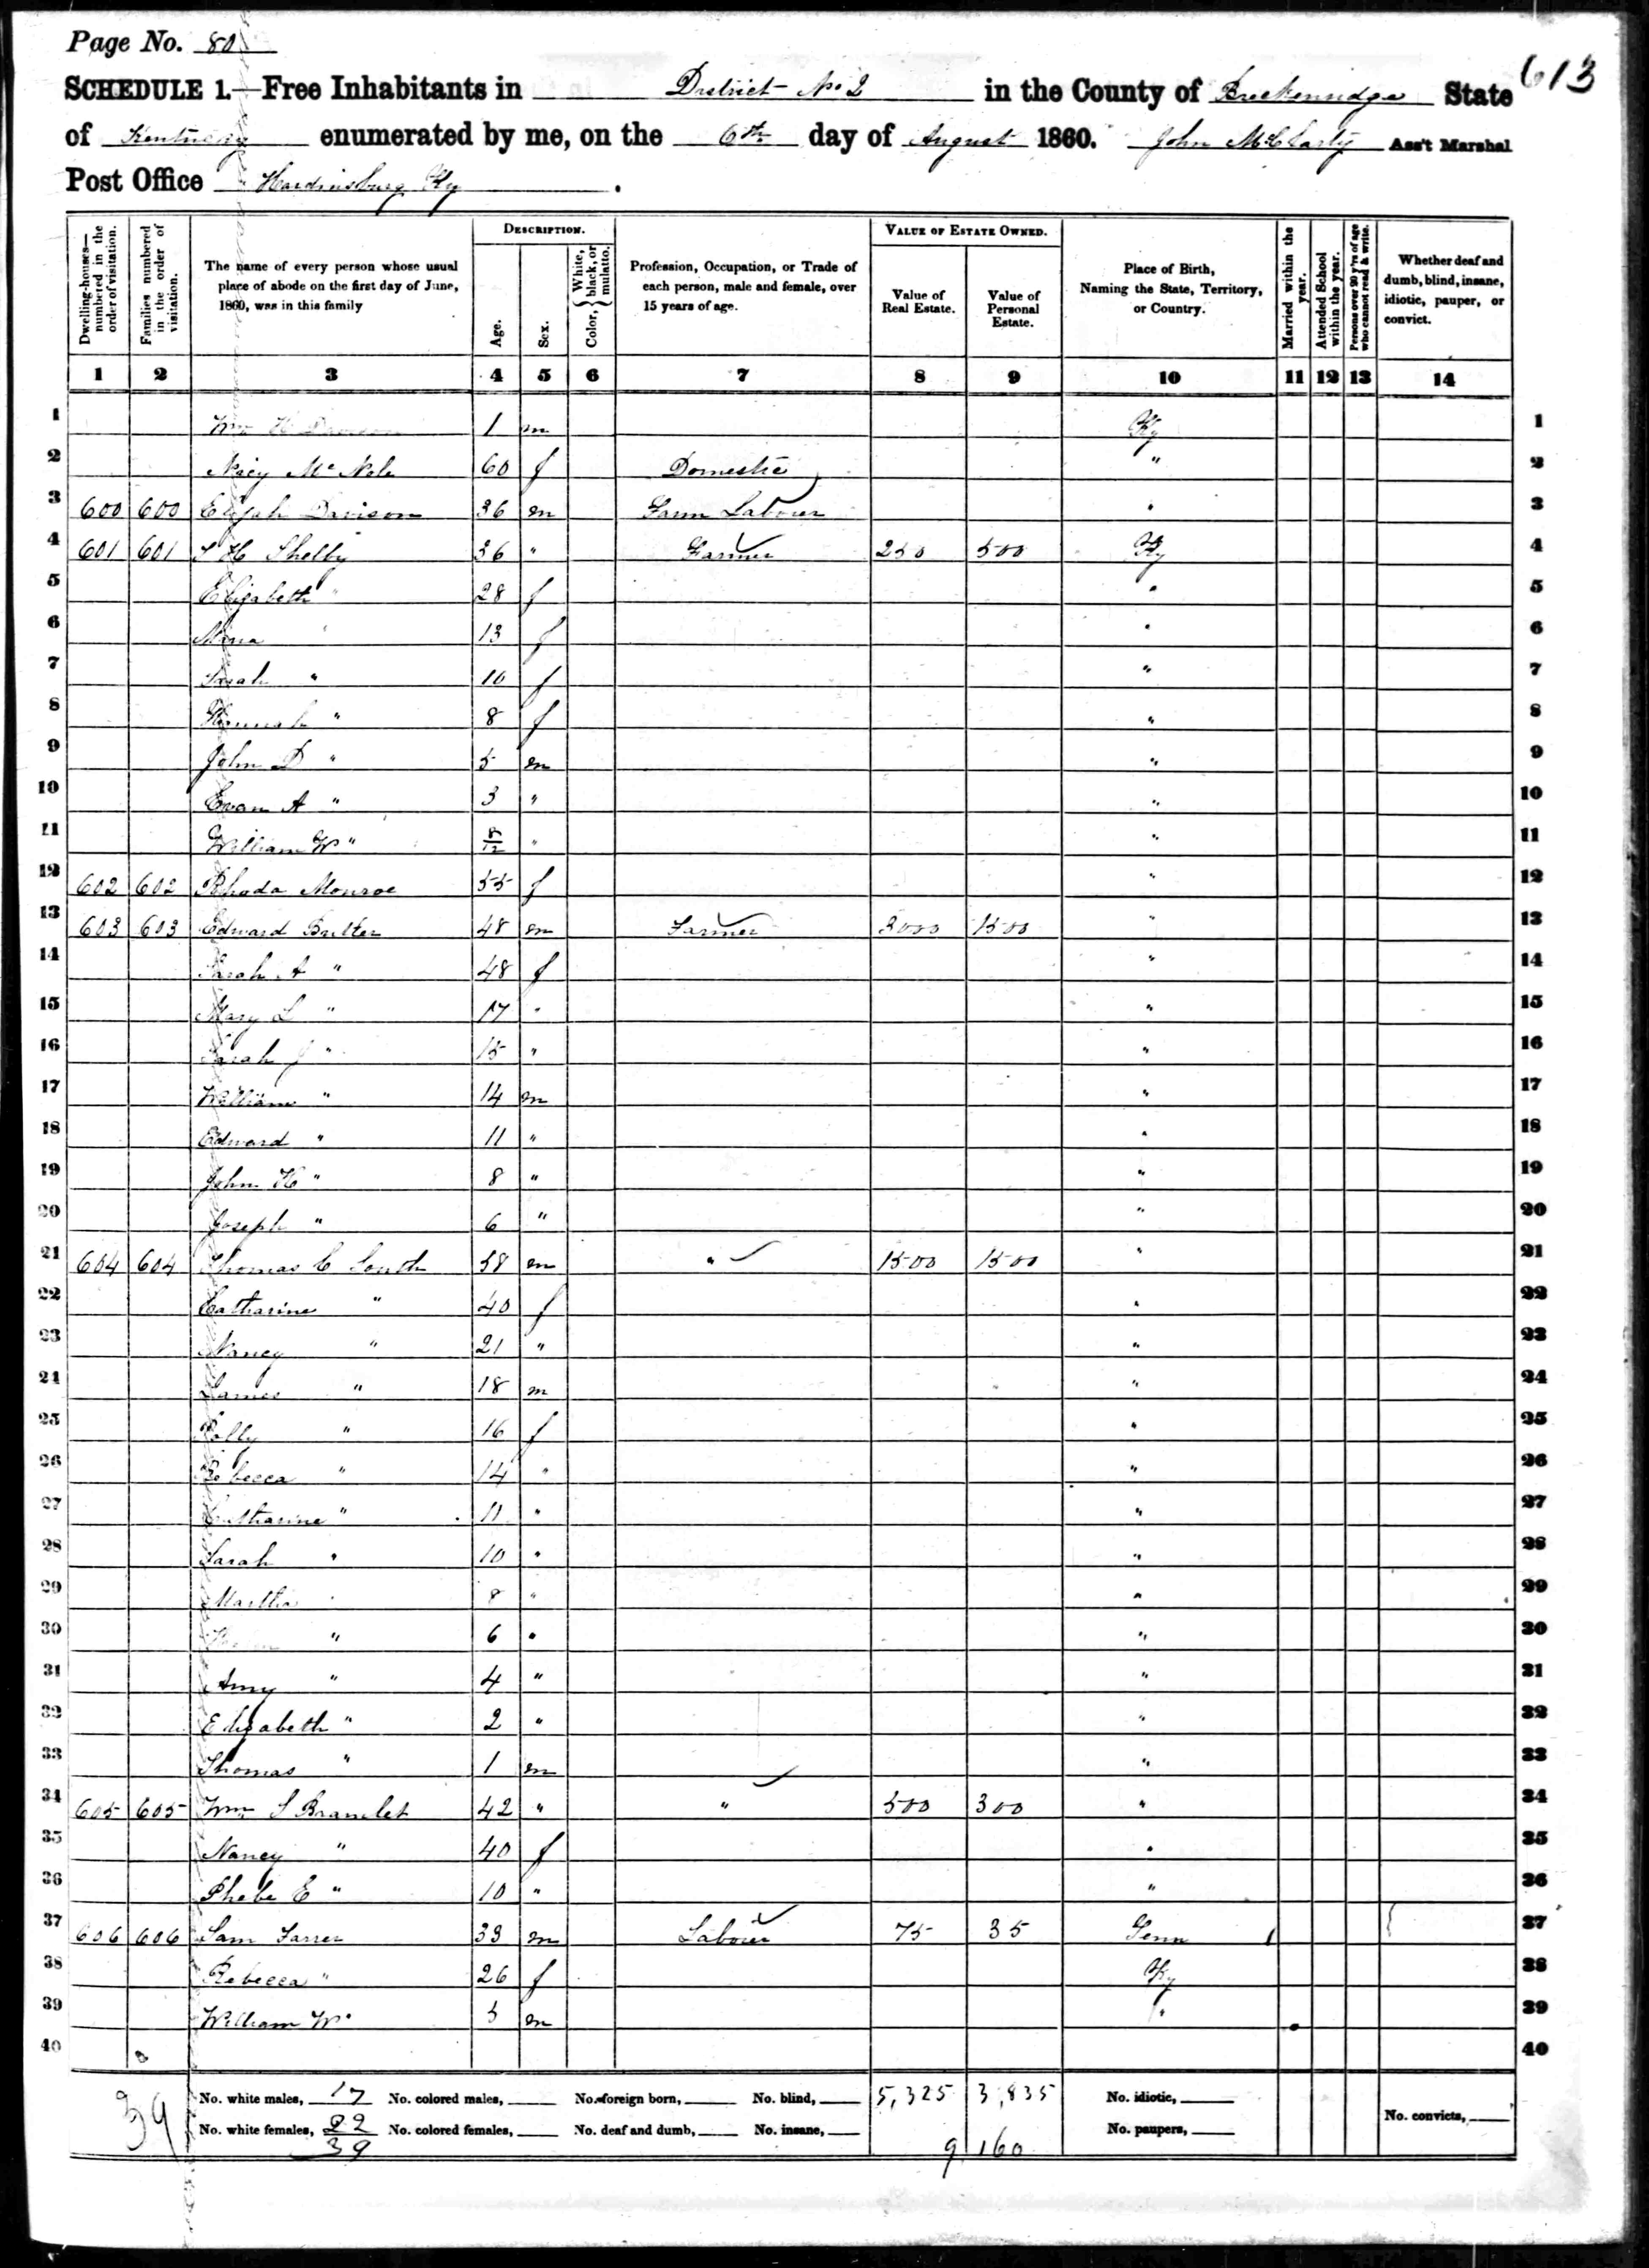 Page No. 80
613
SCHEDULE 1.—Free Inhabitants in District No 2 in the County of Breckenridge State
of Kentucky enumerated by me, on the 6th day of August 1860. John McClarty Ass't Marshal
Post Office Hardinsburg Ky.
Dwelling-houses—numbered in the order of visitation.
Families numbered in the order of visitation.
The name of every person whose usual place of abode on the first day of June, 1860, was in this family
DESCRIPTION.
Age.
Sex.
Color, } White, black, or mulatto.
Profession, Occupation, or Trade of each person, male and female, over 15 years of age.
VALUE OF ESTATE OWNED.
Value of Real Estate.
Value of Personal Estate.
Place of Birth, Naming the State, Territory, or Country.
Married within the year.
Attended School within the year.
Persons over 20 y'rs of age who cannot read & write.
Whether deaf and dumb, blind, insane, idiotic, pauper, or convict.
1 2 3 4 5 6 7 8 9 10 11 12 13 14
1 Wm H Davison 1 m Ky 1
2 60 f Domestic " 2
3 600 600 Elijah Davison 36 m Farm Labour " 3
4 601 601 S H Shelby 36 " Farmer 250 500 Ky 4
5 Elizabeth " 28 f " 5
6 13 f " 6
7 Sarah " 10 f " 7
8 Hannah " 8 f " 8
9 John D " 5 m " 9
10 Evan A " 3 " " 10
11 William W " 8/12 " " 11
12 602 602 Rhoda Monroe 55 f " 12
13 603 603 Edward Butler 48 m Farmer 3000 1500 " 13
14 Sarah A " 48 f " 14
15 Mary L " 17 " " 15
16 Sarah J " 15 " " 16
17 William " 14 m " 17
18 Edward " 11 " " 18
19 John H " 8 " " 19
20 Joseph " 6 " " 20
21 604 604 Thomas C South 58 m " 1500 1500 " 21
22 Catharine " 40 f " 22
23 Nancy " 21 " " 23
24 James " 18 m " 24
25 Polly " 16 f " 25
26 Rebecca " 14 " " 26
27 Catharine " 11 " " 27
28 Sarah " 10 " " 28
29 Martha " 8 " " 29
30 " 6 " " 30
31 Amy " 4 " " 31
32 Elizabeth " 2 " " 32
33 Thomas " 1 m " 33
34 605 605 Wm S Bramlet 42 " " 500 300 " 34
35 Nancy " 40 f " 35
36 Phebe E " 10 " " 36
37 606 606 Sam Farrer 33 m Labourer 75 35 Tenn 37
38 Rebecca " 26 f Ky 38
39 William W " 5 m " 39
40 40
39
No. white males, 17 No. colored males, No. foreign born, No. blind, 5,325 3,835 No. idiotic,
No. white females, 22 No. colored females, No. deaf and dumb, No. insane, No. paupers, No. convicts,
39 9,160